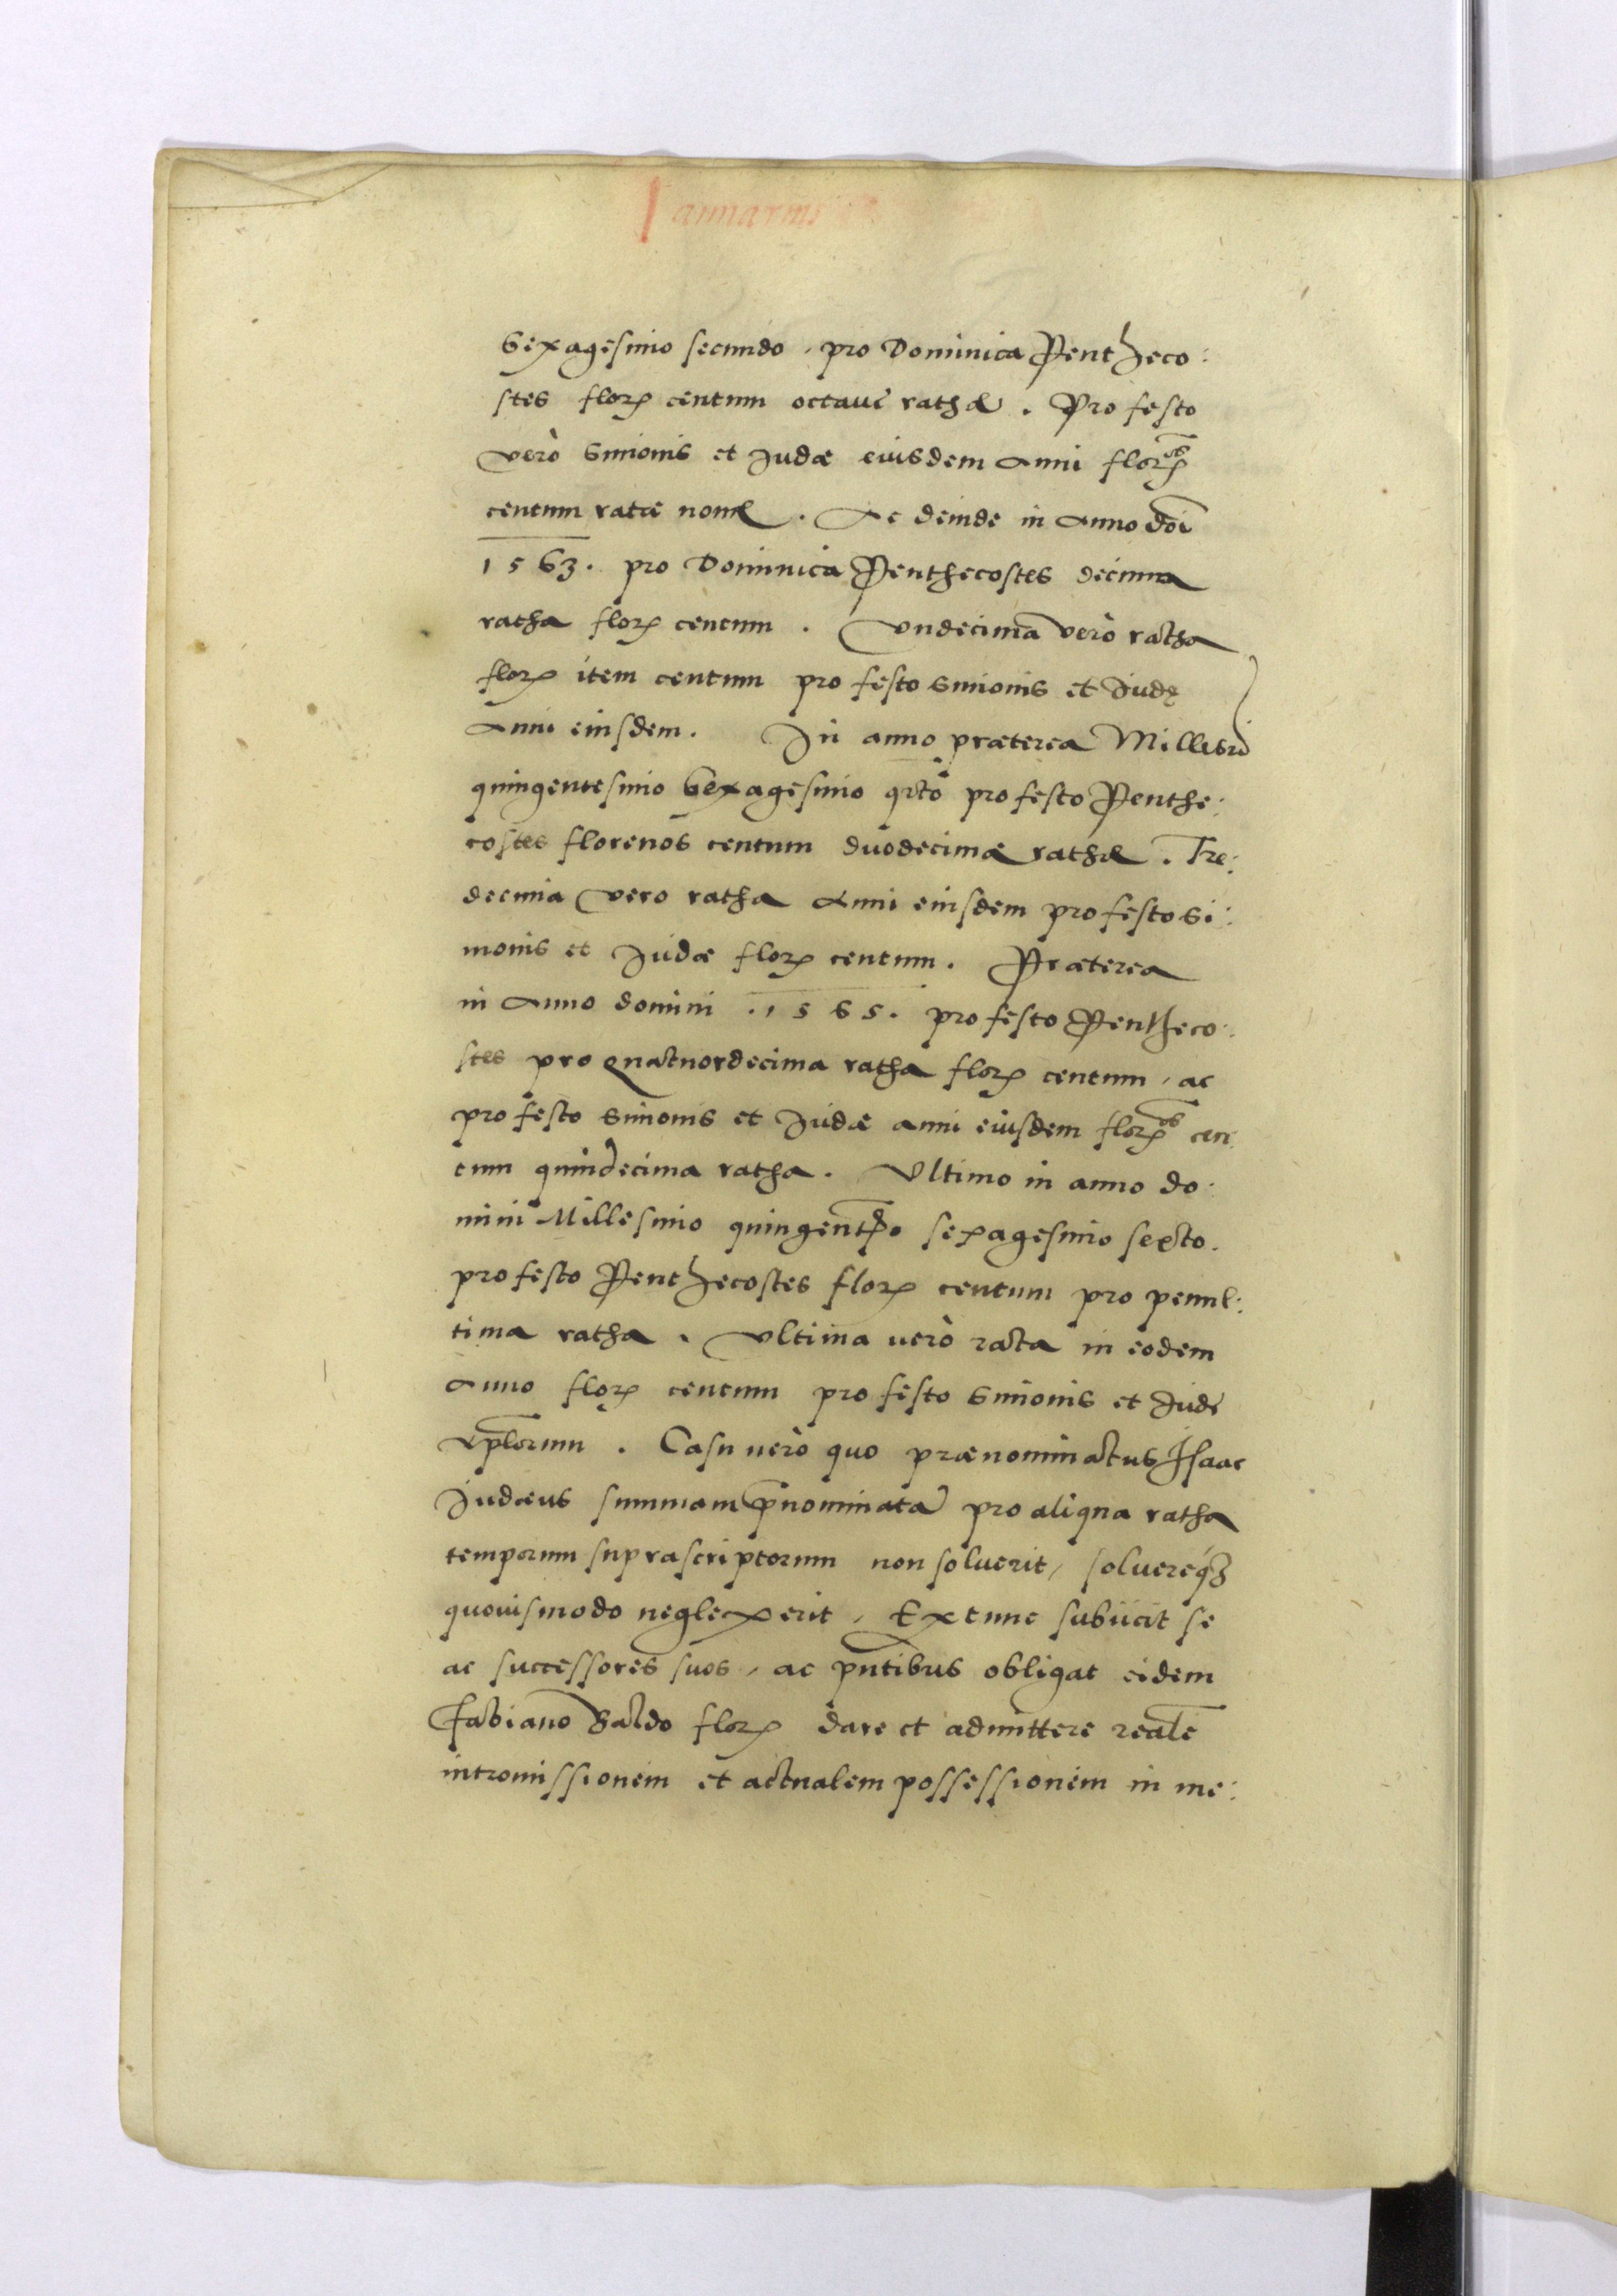 Januarius
Sexagesimo secundo, pro Dominica Pentheco:
stes florꝫ centum octaue rathæ. Pro festo
verò Simonis et Judæ eiusdem Anni florꝫos
centum ratæ nonæ. Ac deinde in Anno doī
1563. pro Dominica Penthecostes decima
ratha florꝫ centum. Vndecima verò ratha
florꝫ item centum pro festo Simonis et Judę
Anni eiusdem. In anno præterea Milles͂o
quingentesimo Sexagesimo qrto pro festo Penthe:
costes florenos centum duodecimæ rathæ. Tre:
decima vero ratha Anni eiusdem pro festo Si:
monis et Judæ florꝫ centum. Præterea
in Anno domini .1565. pro festo Pentheco:
stes pro quatuordecima ratha florꝫ centum, ac
pro festo Simonis et Judæ anni eiusdem florꝫos cen:
tum quindecima ratha. Vltimo in anno do:
mini Millesimo quingentᵐo sexagesimo sexto.
pro festo Penthecostes florꝫ centum pro penul:
tima ratha. Vltima uerò rata in eodem
Anno florꝫ centum pro festo Simonis et Jude
Ap̄lorum. Casu uerò quo prænominatus Isaac
Judæus summam p̄nominatā pro aliqua ratha
temporum suprascriptorum non soluerit, soluereqꝫ
quouismodo neglexerit, Extunc subiicit se
ac successores suos, ac p̄ntibus obligat eidem
Fabiano Baldo florꝫ dare et admittere realē
intromissionem et actualem possessionem in me: